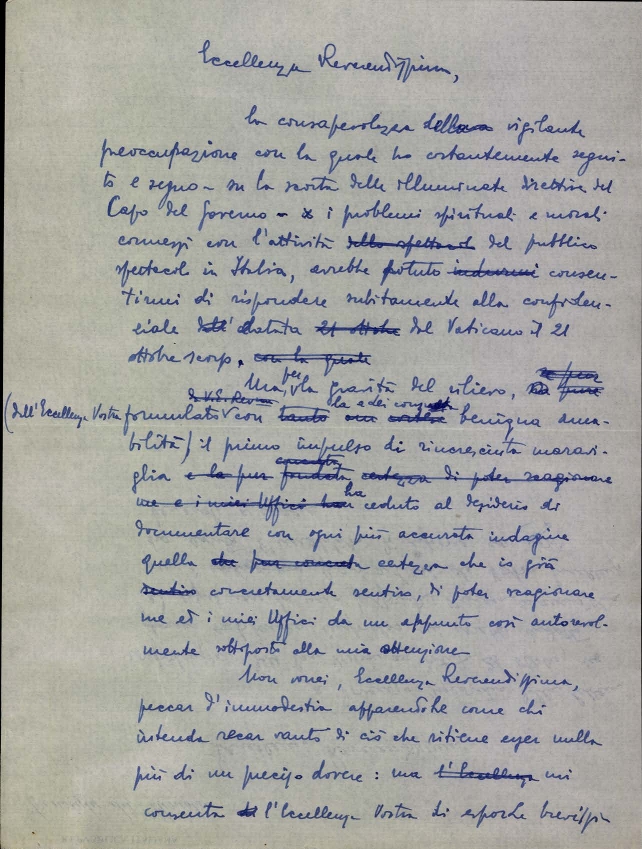 Eccellenza Reverendissima,
la consapevolezza della vigilante
preoccupazione con la quale ho costantemente segui-
to e seguo - su la scorta delle illuminate direttive del
Capo del Governo - i problemi spirituali e morali
connessi con l'attività dello spettacolo del pubblico
spettacolo in Italia, avrebbe potuto indurmi consen-
tirmi di rispondere subitamente alla confiden-
ziale dell' datata 21 ottobre del Vaticano il 21
ottobre scorso. con la quale
Ma, per la gravità del rilievo, sia pure
di V.E. Rev.ma
(dell'Eccellenza Vostra formulato con tanto benigna ama-
bilità) il primo impulso di rincresciuta maravi-
glia e la pur fondata certezza di poter scagionare
me e i miei Uffici han ha ceduto al desiderio di
documentare con ogni più accurata indagine
quella che pur concreta certezza che io già
sentivo concretamente sentivo, di poter scagionare
me ed i miei Uffici da un appunto così autorevol-
mente sottoposto alla mia attenzione
Non vorrei, Eccellenza Reverendissima,
peccar d'immodestia apparendole come chi
intenda recar vanto di ciò che ritiene esser nulla
più di un preciso dovere: ma l'Eccellenza mi
consenta di l'Eccellenza Vostra di esporle brevissi-